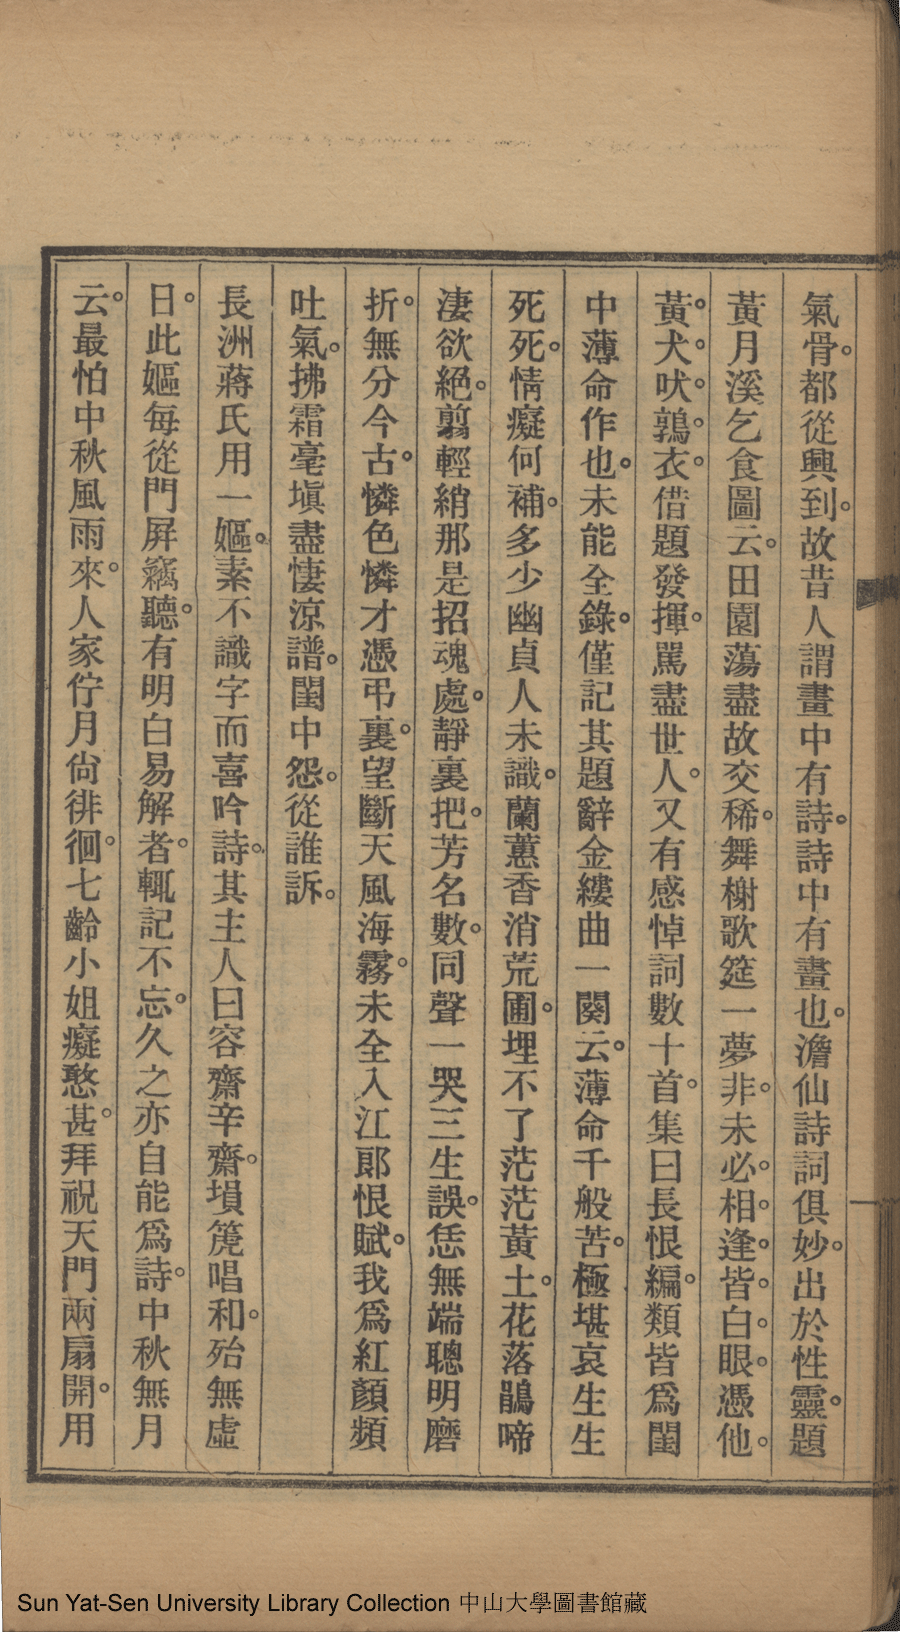 氣骨。都從興到。故昔人謂畫中有詩。詩中有畫也。澹仙詩詞俱妙。出於性靈。題
黃月溪乞食圖云。田園蕩盡故交稀。舞榭歌筵一夢非。未必。相。逢。皆。白。眼。憑他。
黃。犬。吠。鶉。衣。借題發揮。罵盡世人。又有感悼詞數十首。集曰長恨編。類皆爲閨
中薄命作也。未能全錄。僅記其題辭金縷曲一闋云。薄命千般苦。極堪哀生生
死死。情癡何補。多少幽貞人未識。蘭蕙香消荒圃。埋不了茫茫黃土。花落鵑啼
淒欲絕。翦輕綃那是招魂處。靜裏把。芳名數。同聲一哭三生誤。恁無端聰明磨
折。無分今古。憐色憐才憑弔裏。望斷天風海霧。未全入江郎恨賦。我爲紅顏頻
吐氣。拂霜毫塡盡悽涼譜。閨中怨。從誰訴。
長洲蔣氏用一嫗。素不識字而喜吟詩。其主人曰容齋辛齋。塤箎唱和。殆無虛
日。此嫗每從門屏竊聽。有明白易解者。輒記不忘。久之亦自能爲詩。中秋無月
云。最怕中秋風雨來。人家佇月尙徘徊。七齡小姐癡憨甚。拜祝天門兩扇開。用
Sun Yat-Sen University Library Collection 中山大學圖書館藏